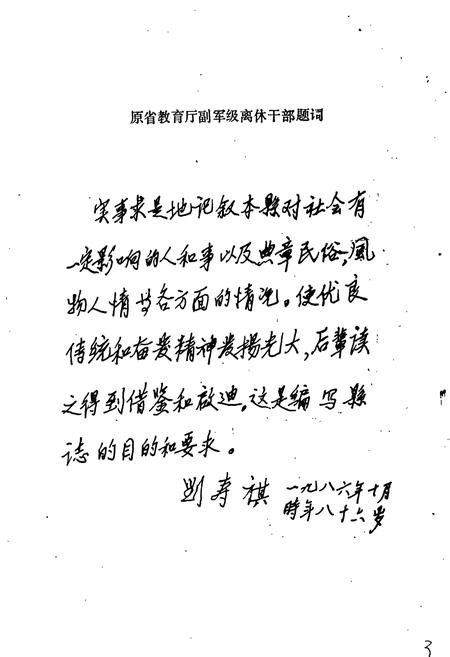 原省教育厅副军级离休干部题词
实事求是地记叙本縣对社会有
一定影响的人和事以及典章民俗,風
物人情等各方面的情况。使优良
传统和奋发精神发揚光大,后辈读
之得到借鉴和启迪,这是编写縣
誌的目的和要求。
刘寿祺 一九八六年十月
時年八十六岁
3